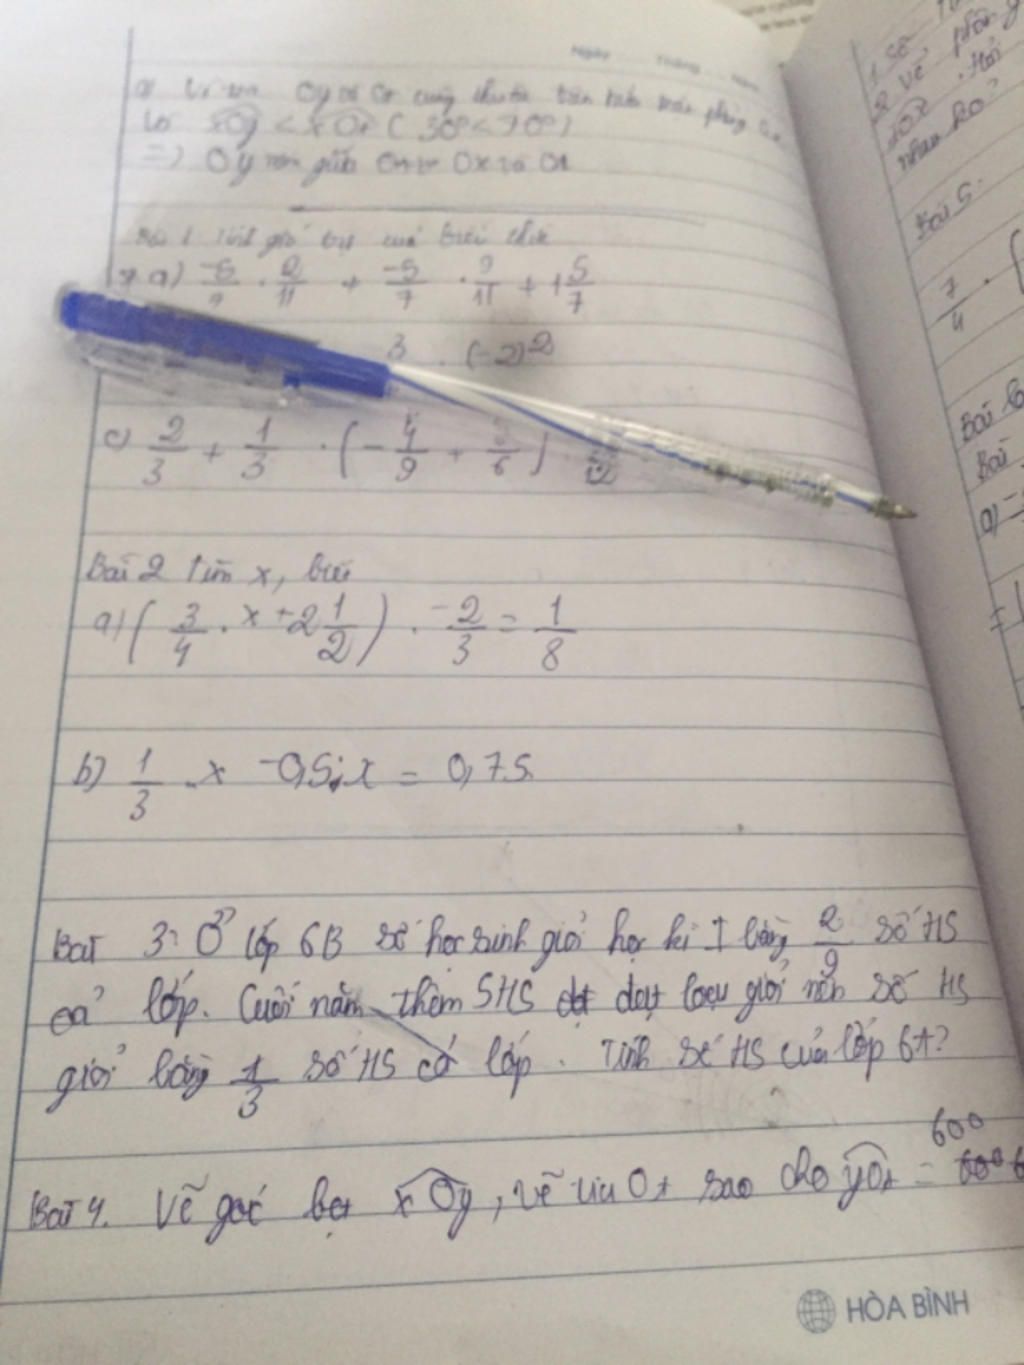 Ngày Tháng
a) Oy và Ot cùng
có xOy < xOt ( 30° < 70° )
=> Oy nằm giữa Ox và Ot
Bài 1 Tính giá trị của biểu thức
a) -5/7 . 2/11 + -5/7 . 9/11 + 1 5/7
3 . (-2)²
c) 2/3 + 1/3 . (- 4/9 +
Bài 2 Tìm x, biết
a) ( 3/4 . x + 2 1/2 ) . -2/3 = 1/8
b) 1/3 . x - 0,5 . x = 0,75
Bài 3: Ở lớp 6B số học sinh giỏi học kì I bằng 2/9 số HS
cả lớp. Cuối năm thêm 5HS đạt loại giỏi nên số HS
giỏi bằng 1/3 số HS cả lớp. Tính số HS của lớp 6A?
600
Bài 4. Vẽ góc bẹt xOy, vẽ tia Ot sao cho yOt =
HÒA BÌNH
Số
2 Vẽ
. Hỏi
Bài 5.
7/4 . (
Bài 6
Bài
a) -
=